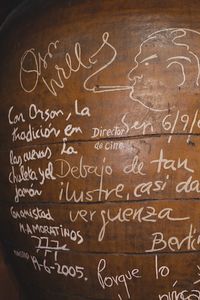 Orson
Welles
Con Orson, la
tradición en
las cuevas la
chuleta y el
jamón
Con amistad
M. AMORATINOS
19-6-2005.
Director
de cine
Sep. 6/9/
Debajo de tan
ilustre, casi da
vergüenza
Porque lo